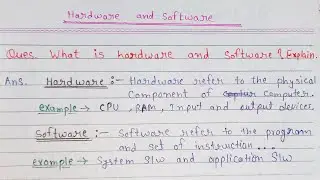 Hardware and Software
Ques. What is hardware and Software ? Explain.
Ans. Hardware :- Hardware refer to the physical
Component of computer.
example → CPU, RAM, Input and output devices.
Software :- Software refer to the program
and set of instruction ...
example → System S/w and application S/w